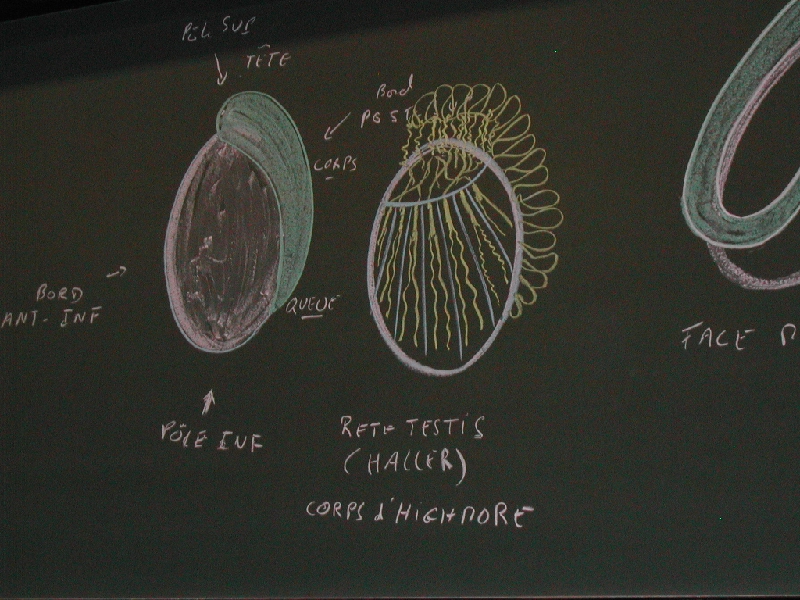 PÔL SUP
TÊTE
Bord
POST
CORPS
BORD
ANT-INF
QUEUE
PÔLE INF
RETE TESTIS
(HALLER)
CORPS d'HIGHMORE
FACE